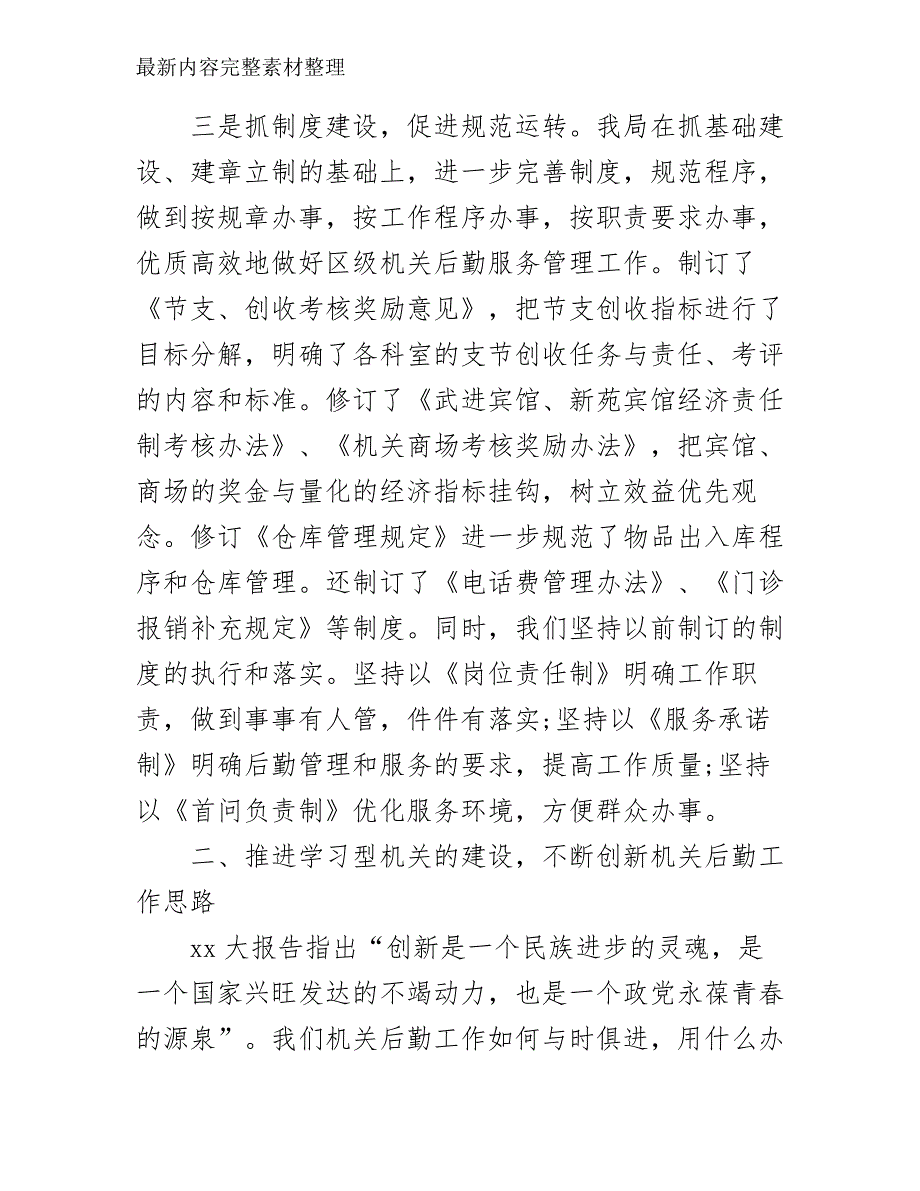 最新内容完整素材整理
三是抓制度建设，促进规范运转。我局在抓基础建
设、建章立制的基础上，进一步完善制度，规范程序，
做到按规章办事，按工作程序办事，按职责要求办事，
优质高效地做好区级机关后勤服务管理工作。制订了
《节支、创收考核奖励意见》，把节支创收指标进行了
目标分解，明确了各科室的支节创收任务与责任、考评
的内容和标准。修订了《武进宾馆、新苑宾馆经济责任
制考核办法》、《机关商场考核奖励办法》，把宾馆、
商场的奖金与量化的经济指标挂钩，树立效益优先观
念。修订《仓库管理规定》进一步规范了物品出入库程
序和仓库管理。还制订了《电话费管理办法》、《门诊
报销补充规定》等制度。同时，我们坚持以前制订的制
度的执行和落实。坚持以《岗位责任制》明确工作职
责，做到事事有人管，件件有落实;坚持以《服务承诺
制》明确后勤管理和服务的要求，提高工作质量;坚持
以《首问负责制》优化服务环境，方便群众办事。
二、推进学习型机关的建设，不断创新机关后勤工
作思路
xx大报告指出“创新是一个民族进步的灵魂，是
一个国家兴旺发达的不竭动力，也是一个政党永葆青春
的源泉”。我们机关后勤工作如何与时俱进，用什么办